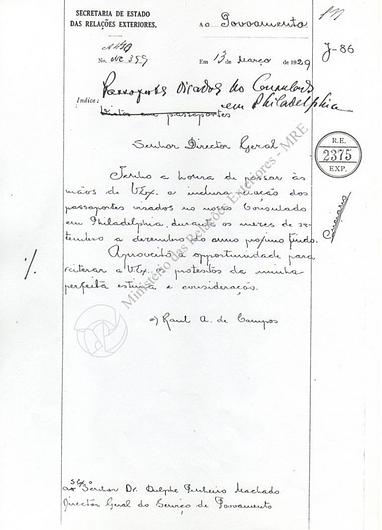 SECRETARIA DE ESTADO
DAS RELAÇÕES EXTERIORES.
Ao Povoamento
No. NC 359
Em 13 de Março de 1929
J-86
Passaportes visados no Consulado
em Philadelphia
Indice:
Vistos em passaportes
Senhor Director Geral
R.E.
2375
EXP.
Tenho a honra de passar ás
mãos de V. Ex. a inclusa relação dos
passaportes visados no nosso Consulado
em Philadelphia, durante os mezes de se-
tembro a dezembro do anno proximo findo.
Aproveito a opportunidade para
reiterar a V. Ex. os protestos da minha
perfeita estima e consideração.
a) Raul A. de Campos
Ministério das Relações Exteriores - MRE
Senhor Dr. Dulphe Pinheiro Machado
Director Geral do Serviço de Povoamento